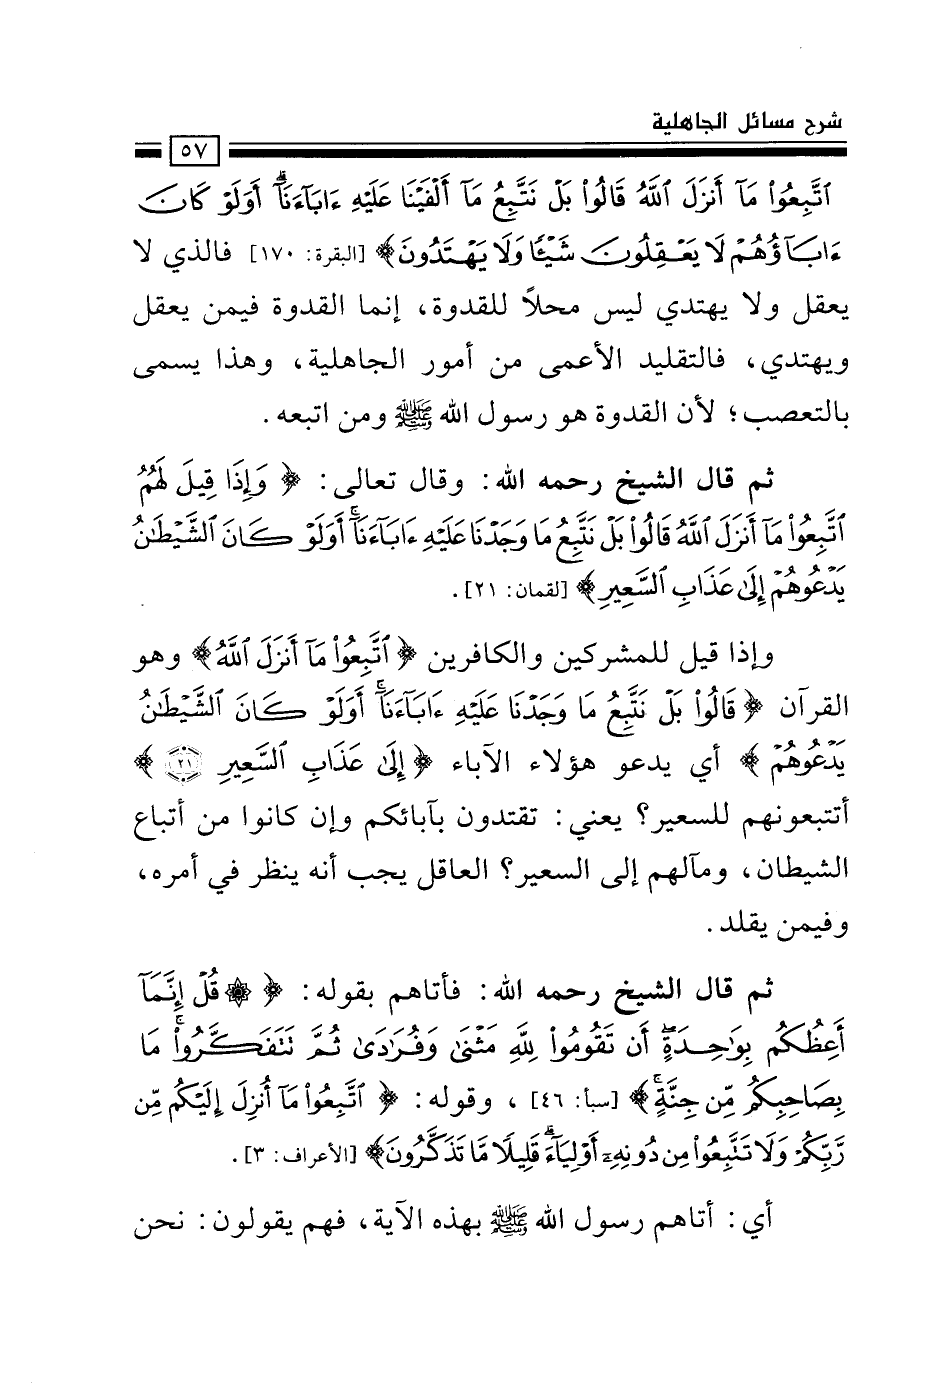 شرح مسائل الجاهلية
٥٧
ٱتَّبِعُوا۟ مَآ أَنزَلَ ٱللَّهُ قَالُوا۟ بَلْ نَتَّبِعُ مَآ أَلْفَيْنَا عَلَيْهِ ءَابَآءَنَآ ۗ أَوَلَوْ كَانَ
ءَابَآؤُهُمْ لَا يَعْقِلُونَ شَيْـًٔا وَلَا يَهْتَدُونَ﴾ [البقرة: ١٧٠] فالذي لا
يعقل ولا يهتدي ليس محلاً للقدوة، إنما القدوة فيمن يعقل
ويهتدي، فالتقليد الأعمى من أمور الجاهلية، وهذا يسمى
بالتعصب؛ لأن القدوة هو رسول الله ﷺ ومن اتبعه.
ثم قال الشيخ رحمه الله: وقال تعالى: ﴿وَإِذَا قِيلَ لَهُمُ
ٱتَّبِعُوا۟ مَآ أَنزَلَ ٱللَّهُ قَالُوا۟ بَلْ نَتَّبِعُ مَا وَجَدْنَا عَلَيْهِ ءَابَآءَنَآ ۚ أَوَلَوْ كَانَ ٱلشَّيْطَٰنُ
يَدْعُوهُمْ إِلَىٰ عَذَابِ ٱلسَّعِيرِ﴾ [لقمان: ٢١].
وإذا قيل للمشركين والكافرين ﴿ٱتَّبِعُوا۟ مَآ أَنزَلَ ٱللَّهُ﴾ وهو
القرآن ﴿قَالُوا۟ بَلْ نَتَّبِعُ مَا وَجَدْنَا عَلَيْهِ ءَابَآءَنَآ ۚ أَوَلَوْ كَانَ ٱلشَّيْطَٰنُ
يَدْعُوهُمْ﴾ أي يدعو هؤلاء الآباء ﴿إِلَىٰ عَذَابِ ٱلسَّعِيرِ ۝٢١﴾
أتتبعونهم للسعير؟ يعني: تقتدون بآبائكم وإن كانوا من أتباع
الشيطان، ومآلهم إلى السعير؟ العاقل يجب أنه ينظر في أمره،
وفيمن يقلد.
ثم قال الشيخ رحمه الله: فأتاهم بقوله: ﴿۞ قُلْ إِنَّمَآ
أَعِظُكُم بِوَٰحِدَةٍ ۖ أَن تَقُومُوا۟ لِلَّهِ مَثْنَىٰ وَفُرَٰدَىٰ ثُمَّ تَتَفَكَّرُوا۟ ۚ مَا
بِصَاحِبِكُم مِّن جِنَّةٍ ۚ﴾ [سبأ: ٤٦]، وقوله: ﴿ٱتَّبِعُوا۟ مَآ أُنزِلَ إِلَيْكُم مِّن
رَّبِّكُمْ وَلَا تَتَّبِعُوا۟ مِن دُونِهِۦٓ أَوْلِيَآءَ ۗ قَلِيلًا مَّا تَذَكَّرُونَ﴾ [الأعراف: ٣].
أي: أتاهم رسول الله ﷺ بهذه الآية، فهم يقولون: نحن